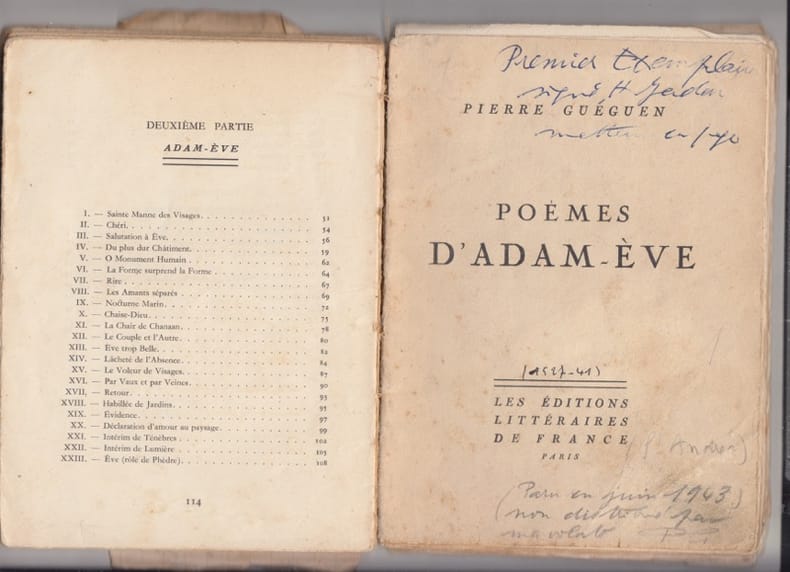 DEUXIÈME PARTIE
ADAM-ÈVE
I. — Sainte Manne des Visages. 51
II. — Chéri. 54
III. — Salutation à Ève. 56
IV. — Du plus dur Châtiment. 59
V. — O Monument Humain 62
VI. — La Forme surprend la Forme 64
VII. — Rire 67
VIII. — Les Amants séparés 69
IX. — Nocturne Marin. 72
X. — Chaise-Dieu. 75
XI. — La Chair de Chanaan. 78
XII. — Le Couple et l'Autre. 80
XIII. — Ève trop Belle. 82
XIV. — Lâcheté de l'Absence. 84
XV. — Le Voleur de Visages. 87
XVI. — Par Vaux et par Veines. 90
XVII, — Retour. 93
XVIII. — Habillée de Jardins. 95
XIX. — Évidence. 97
XX. — Déclaration d'amour au paysage. 99
XXI. — Intérim de Ténèbres 102
XXII. — Intérim de Lumière 105
XXIII. — Ève (rôle de Phèdre). 108
114
Premier Exemplaire
signé H
PIERRE GUÉGUEN
en page
POÈMES
D'ADAM-ÈVE
LES ÉDITIONS
LITTÉRAIRES
DE FRANCE
PARIS
(Paru en juin 1943)
(non distribué par
ma volonté